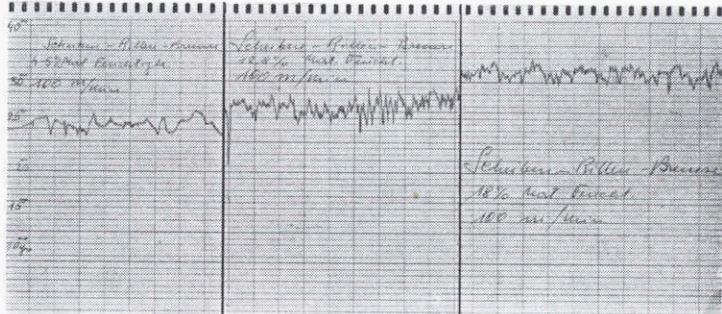 40
Scheiben-Rillen-Bremse
Mat. Feuchtigk.
30 100 m/min
25
15
10
Scheiben-Rillen-Bremse
Mat. Feucht.
100 m/min
Scheiben-Rillen-Bremse
18% Mat. Feucht.
100 m/min